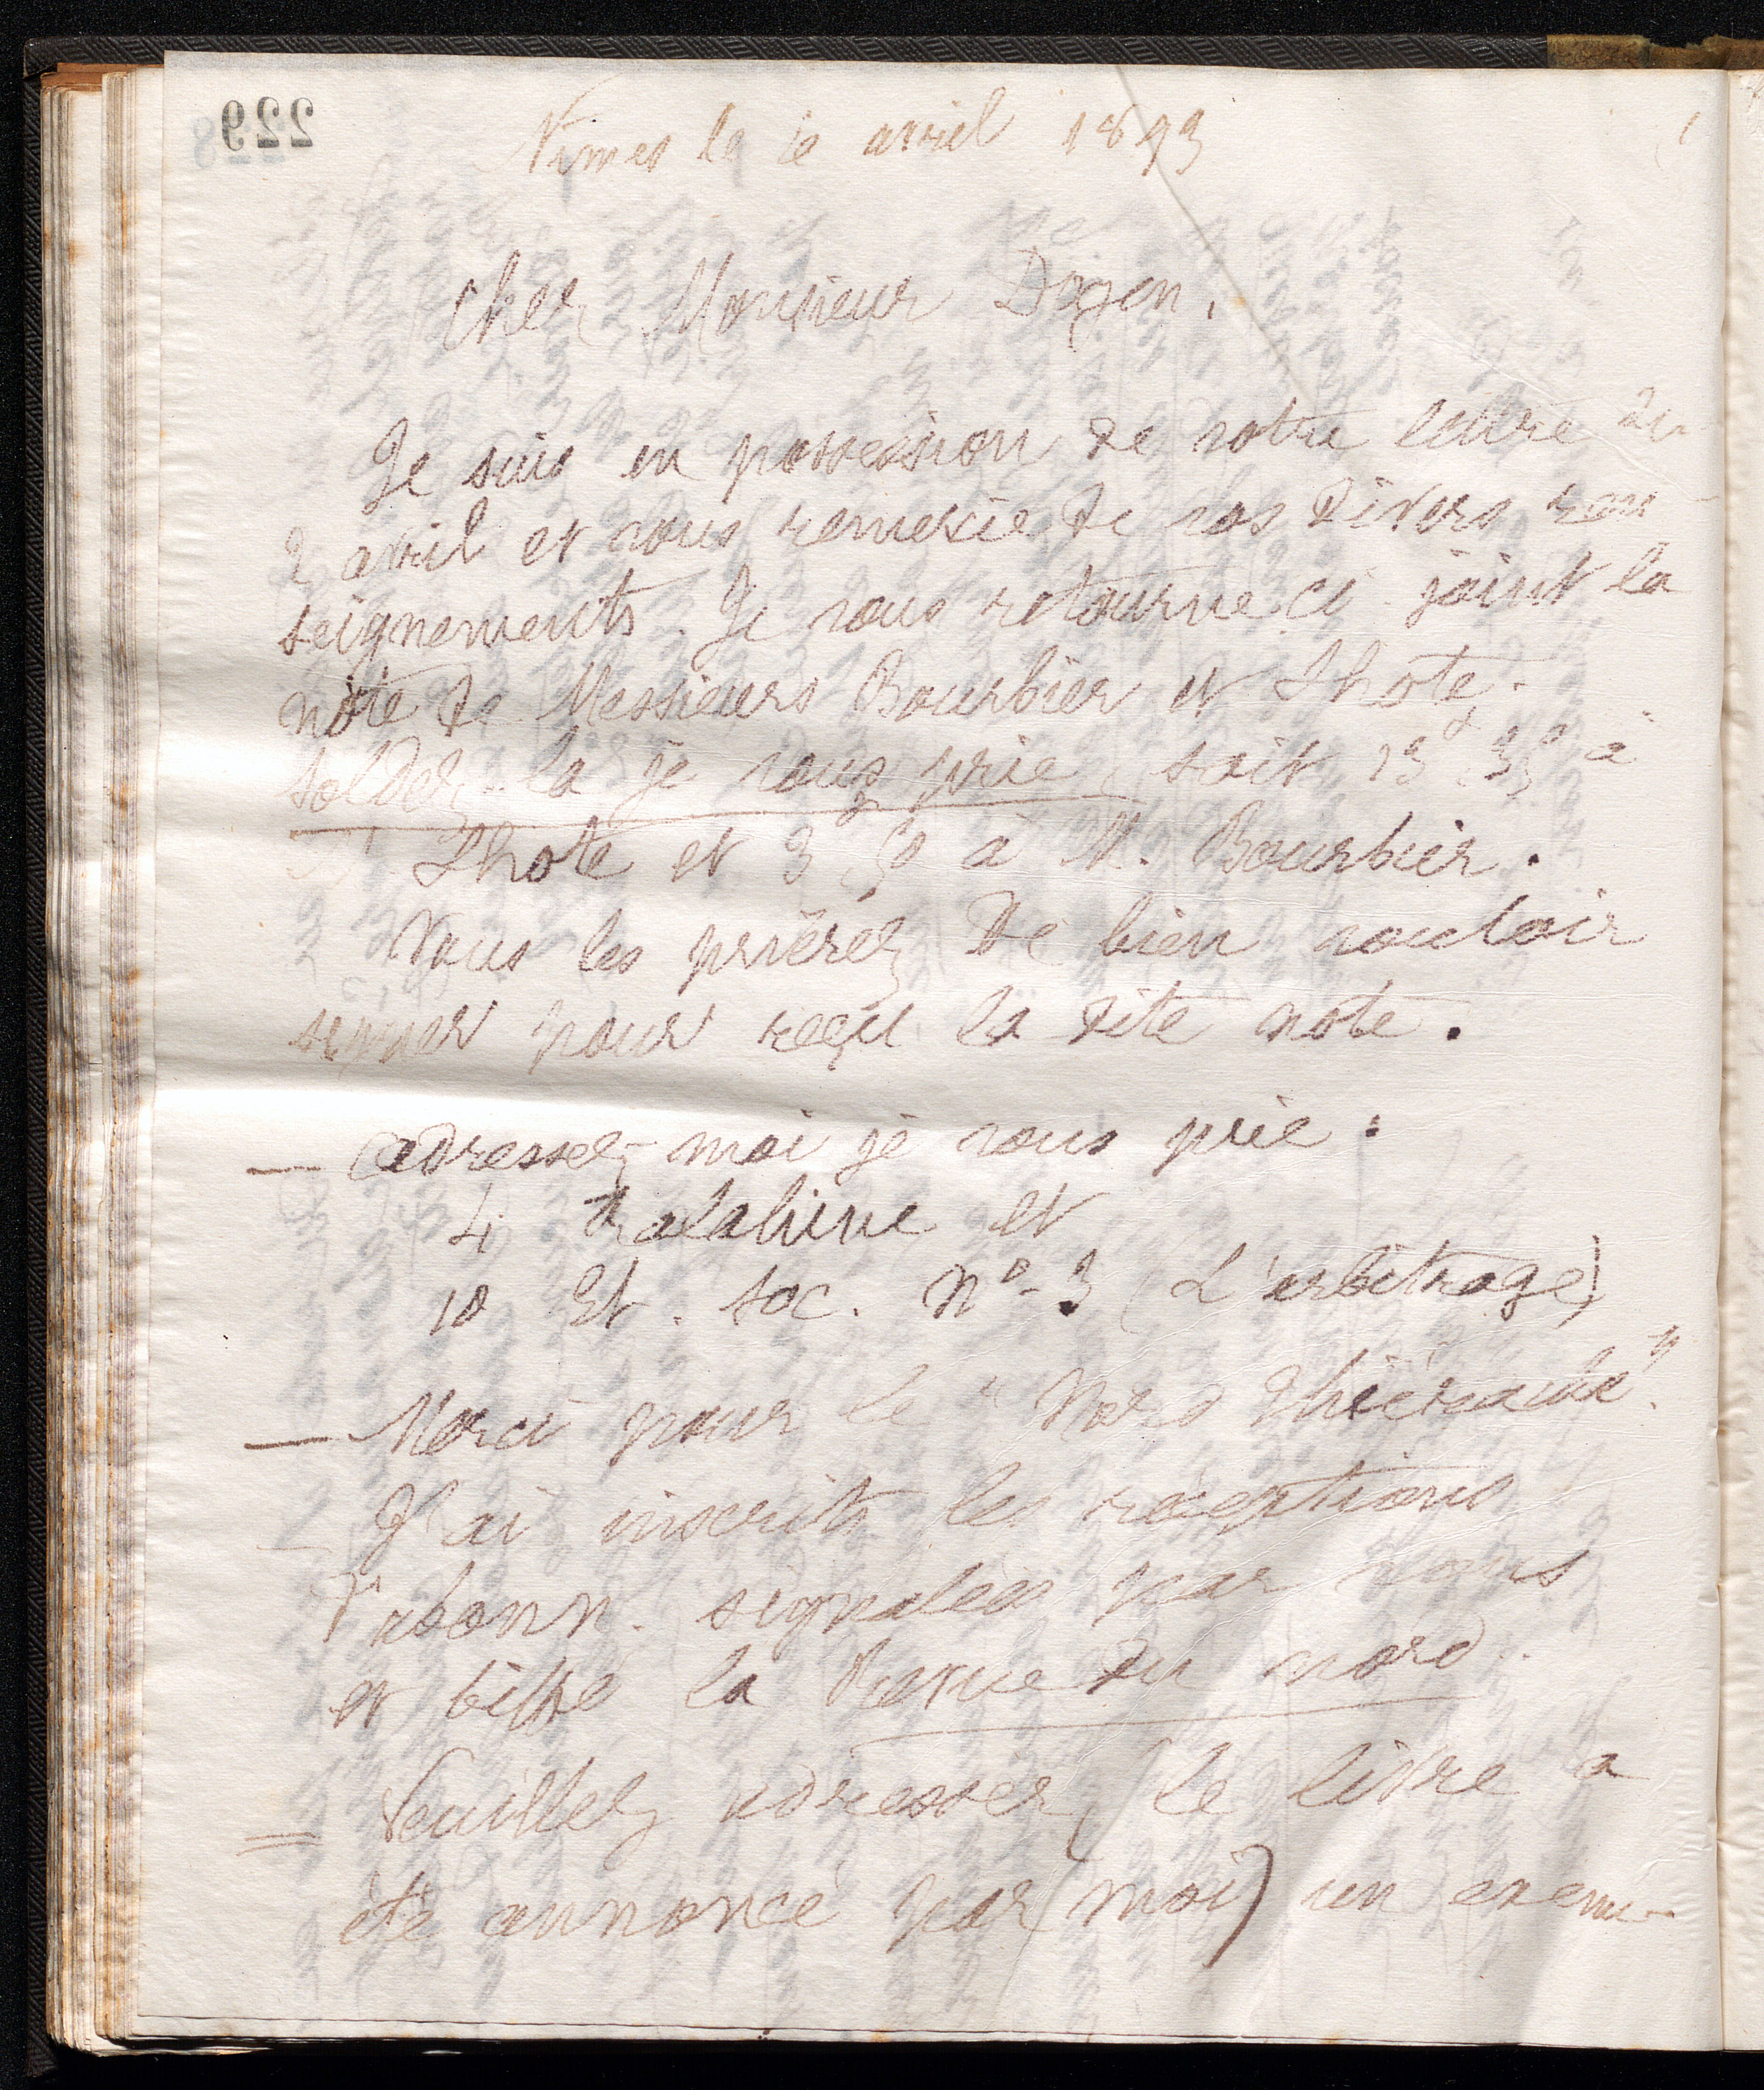 229
Nimes le avril 1893
Cher Monsieur Doyen.
Je suis en possession de votre lettre du
2 avril et vous remercie de vos divers ren-
seignements. Je vous retourne ci-joint la
note de Messieurs Bourbier et Lhote.
soldez-la je vous prie, soit à
Lhote et 3f 50 à M. Bourbier.
Vous les prierez de bien vouloir
signer pour reçu la dite note.
— adressez-moi je vous prie :
4 Ralahine et
10 Et. soc. No 3 (L'arbitrage)
— Merci pour le "Nord Thiérache".
— J'ai inscrits les réceptions
d'abonn. signalées par vous
et biffé la Revue du nord.
= Veuillez adresser (le livre a
été annoncé par moi) un exem-